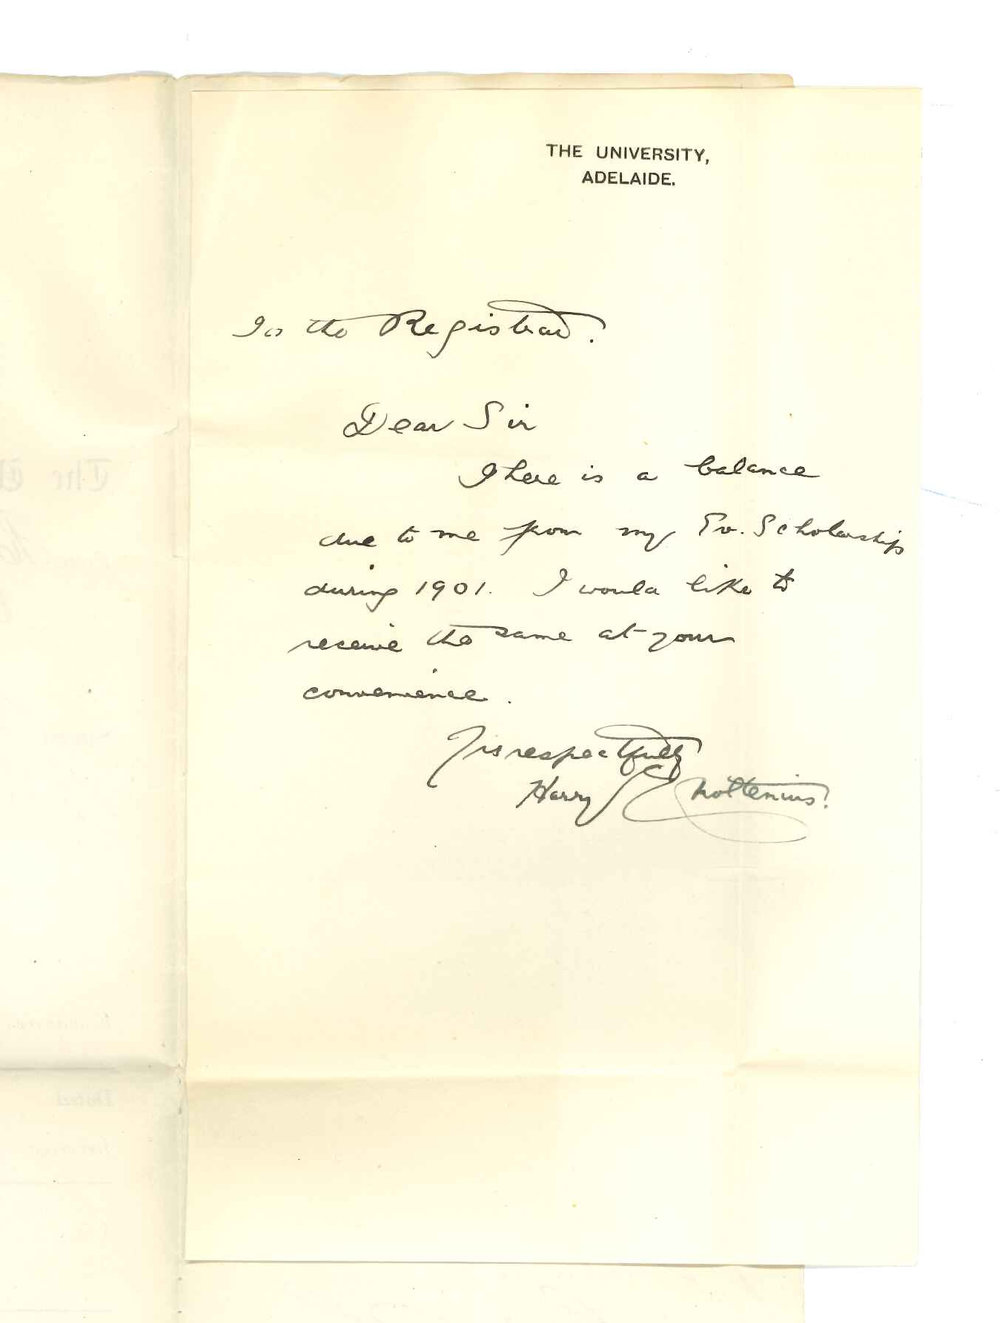 THE UNIVERSITY,
ADELAIDE.
To the Registrar.
Dear Sir
There is a balance
due to me from my Ev. Scholarship
during 1901. I would like to
receive the same at your
convenience.
Yrs respectfully
Harry E Moltenius.
The
Dated